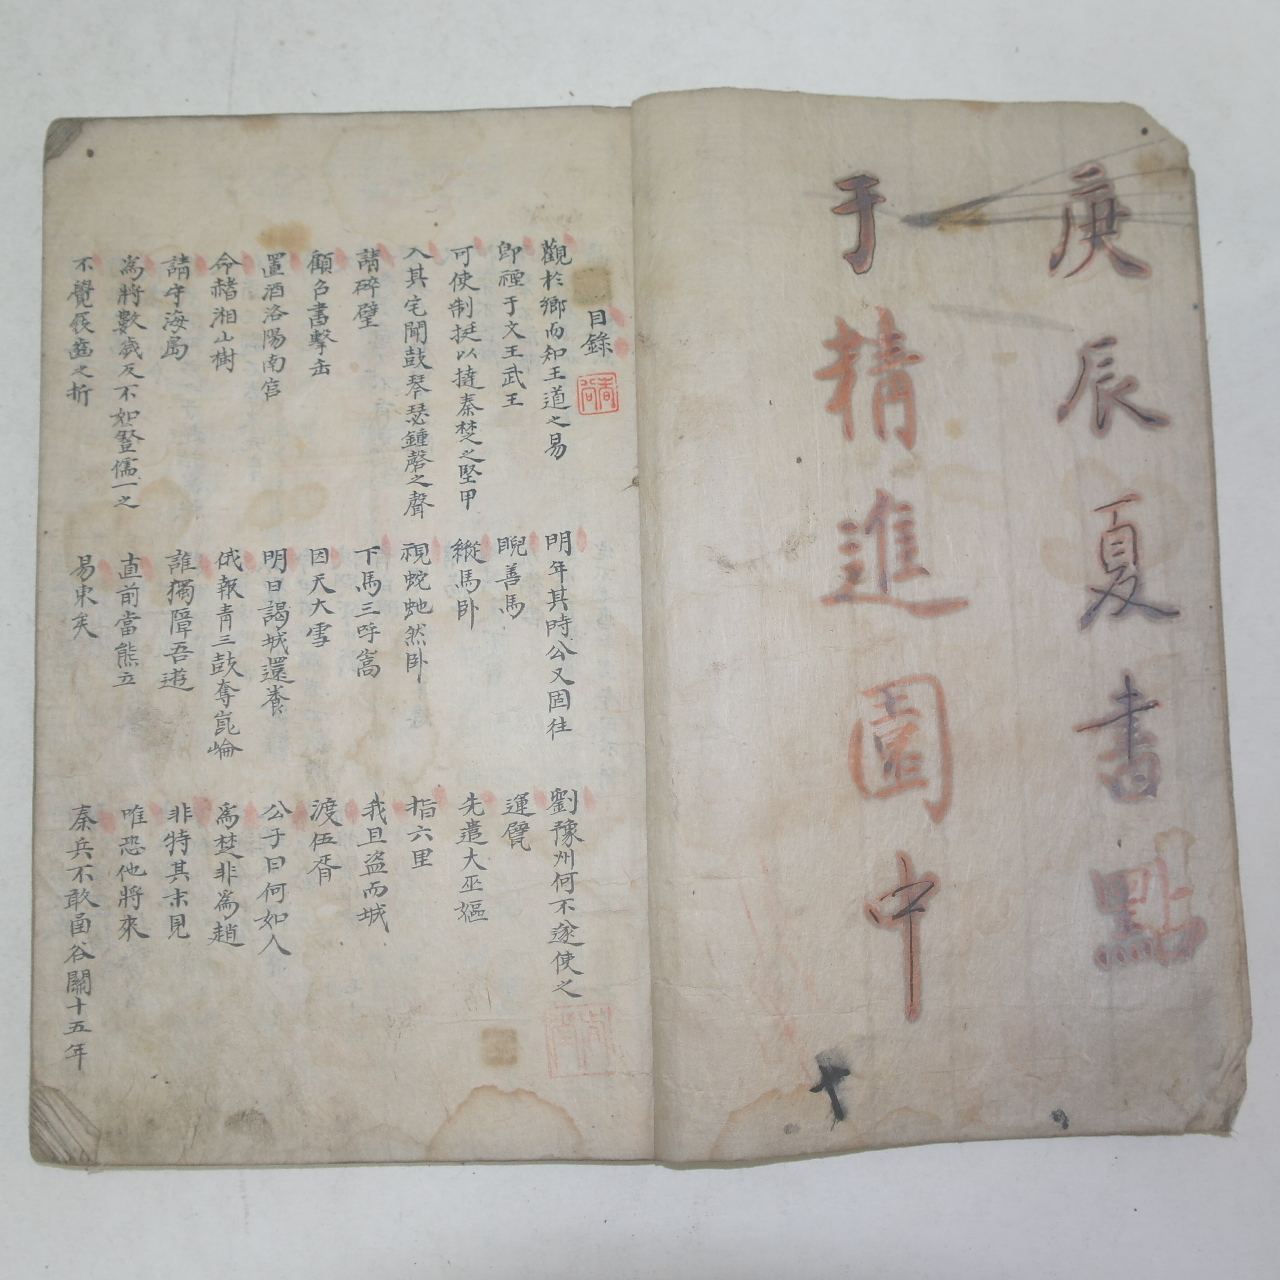 庚辰夏書點
于精進園中
目錄
觀於鄉而知王道之易
明年其時公又固往
劉豫州何不遂使之
即禋于文王武王
睨善馬
運甓
可使制挺以撻秦楚之堅甲
縱馬卧
先遣大巫嫗
入其宅聞鼓琴瑟鍾磬之聲
視蛇虵然卧
指六里
請碎璧
下馬三呼嵩
我且盗而城
顧召書擊缶
因天大雪
渡伍胥
置酒洛陽南宮
明日謁城還養
公子曰何如人
令赭湘山樹
俄報青三鼓奪崑崙
爲楚非爲趙
請守海島
誰獨障吾遊
非特其未見
爲將數歲反不如豎儒一之
直前當熊立
唯恐他將來
不覺屐齒之折
易東矣
秦兵不敢函谷關十五年